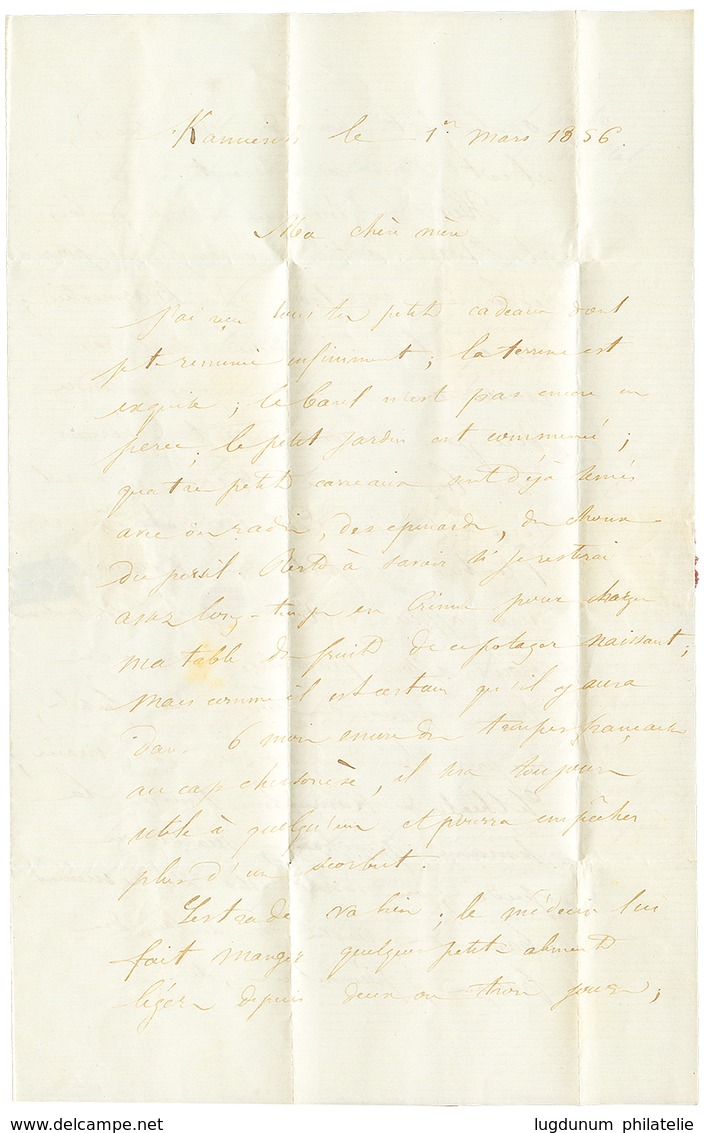 Kamiesch le 1er mars 1856.
Ma chère mère
J'ai reçu tous tes petits cadeaux dont
je te remercie infiniment; la terrine est
exquise; le baril n'est pas encore en
perce; le petit jardin est commencé;
quatre petits carreaux sont déjà semés
avec des radis, des épinards, des choux
du persil. Reste à savoir si je resterai
assez long-temps en Crimée pour charger
ma table des fruits de ce potager naissant;
mais comme il est certain qu'il y aura
dans 6 mois encore des troupes françaises
au cap chersonèse, il sera toujours
utile à quelqu'un et pourra empêcher
plus d'un scorbut.
Lestrade va bien; le médecin lui
fait manger quelques petits aliments
légers depuis deux ou trois jours;
www.delcampe.net
lugdunum philatelie